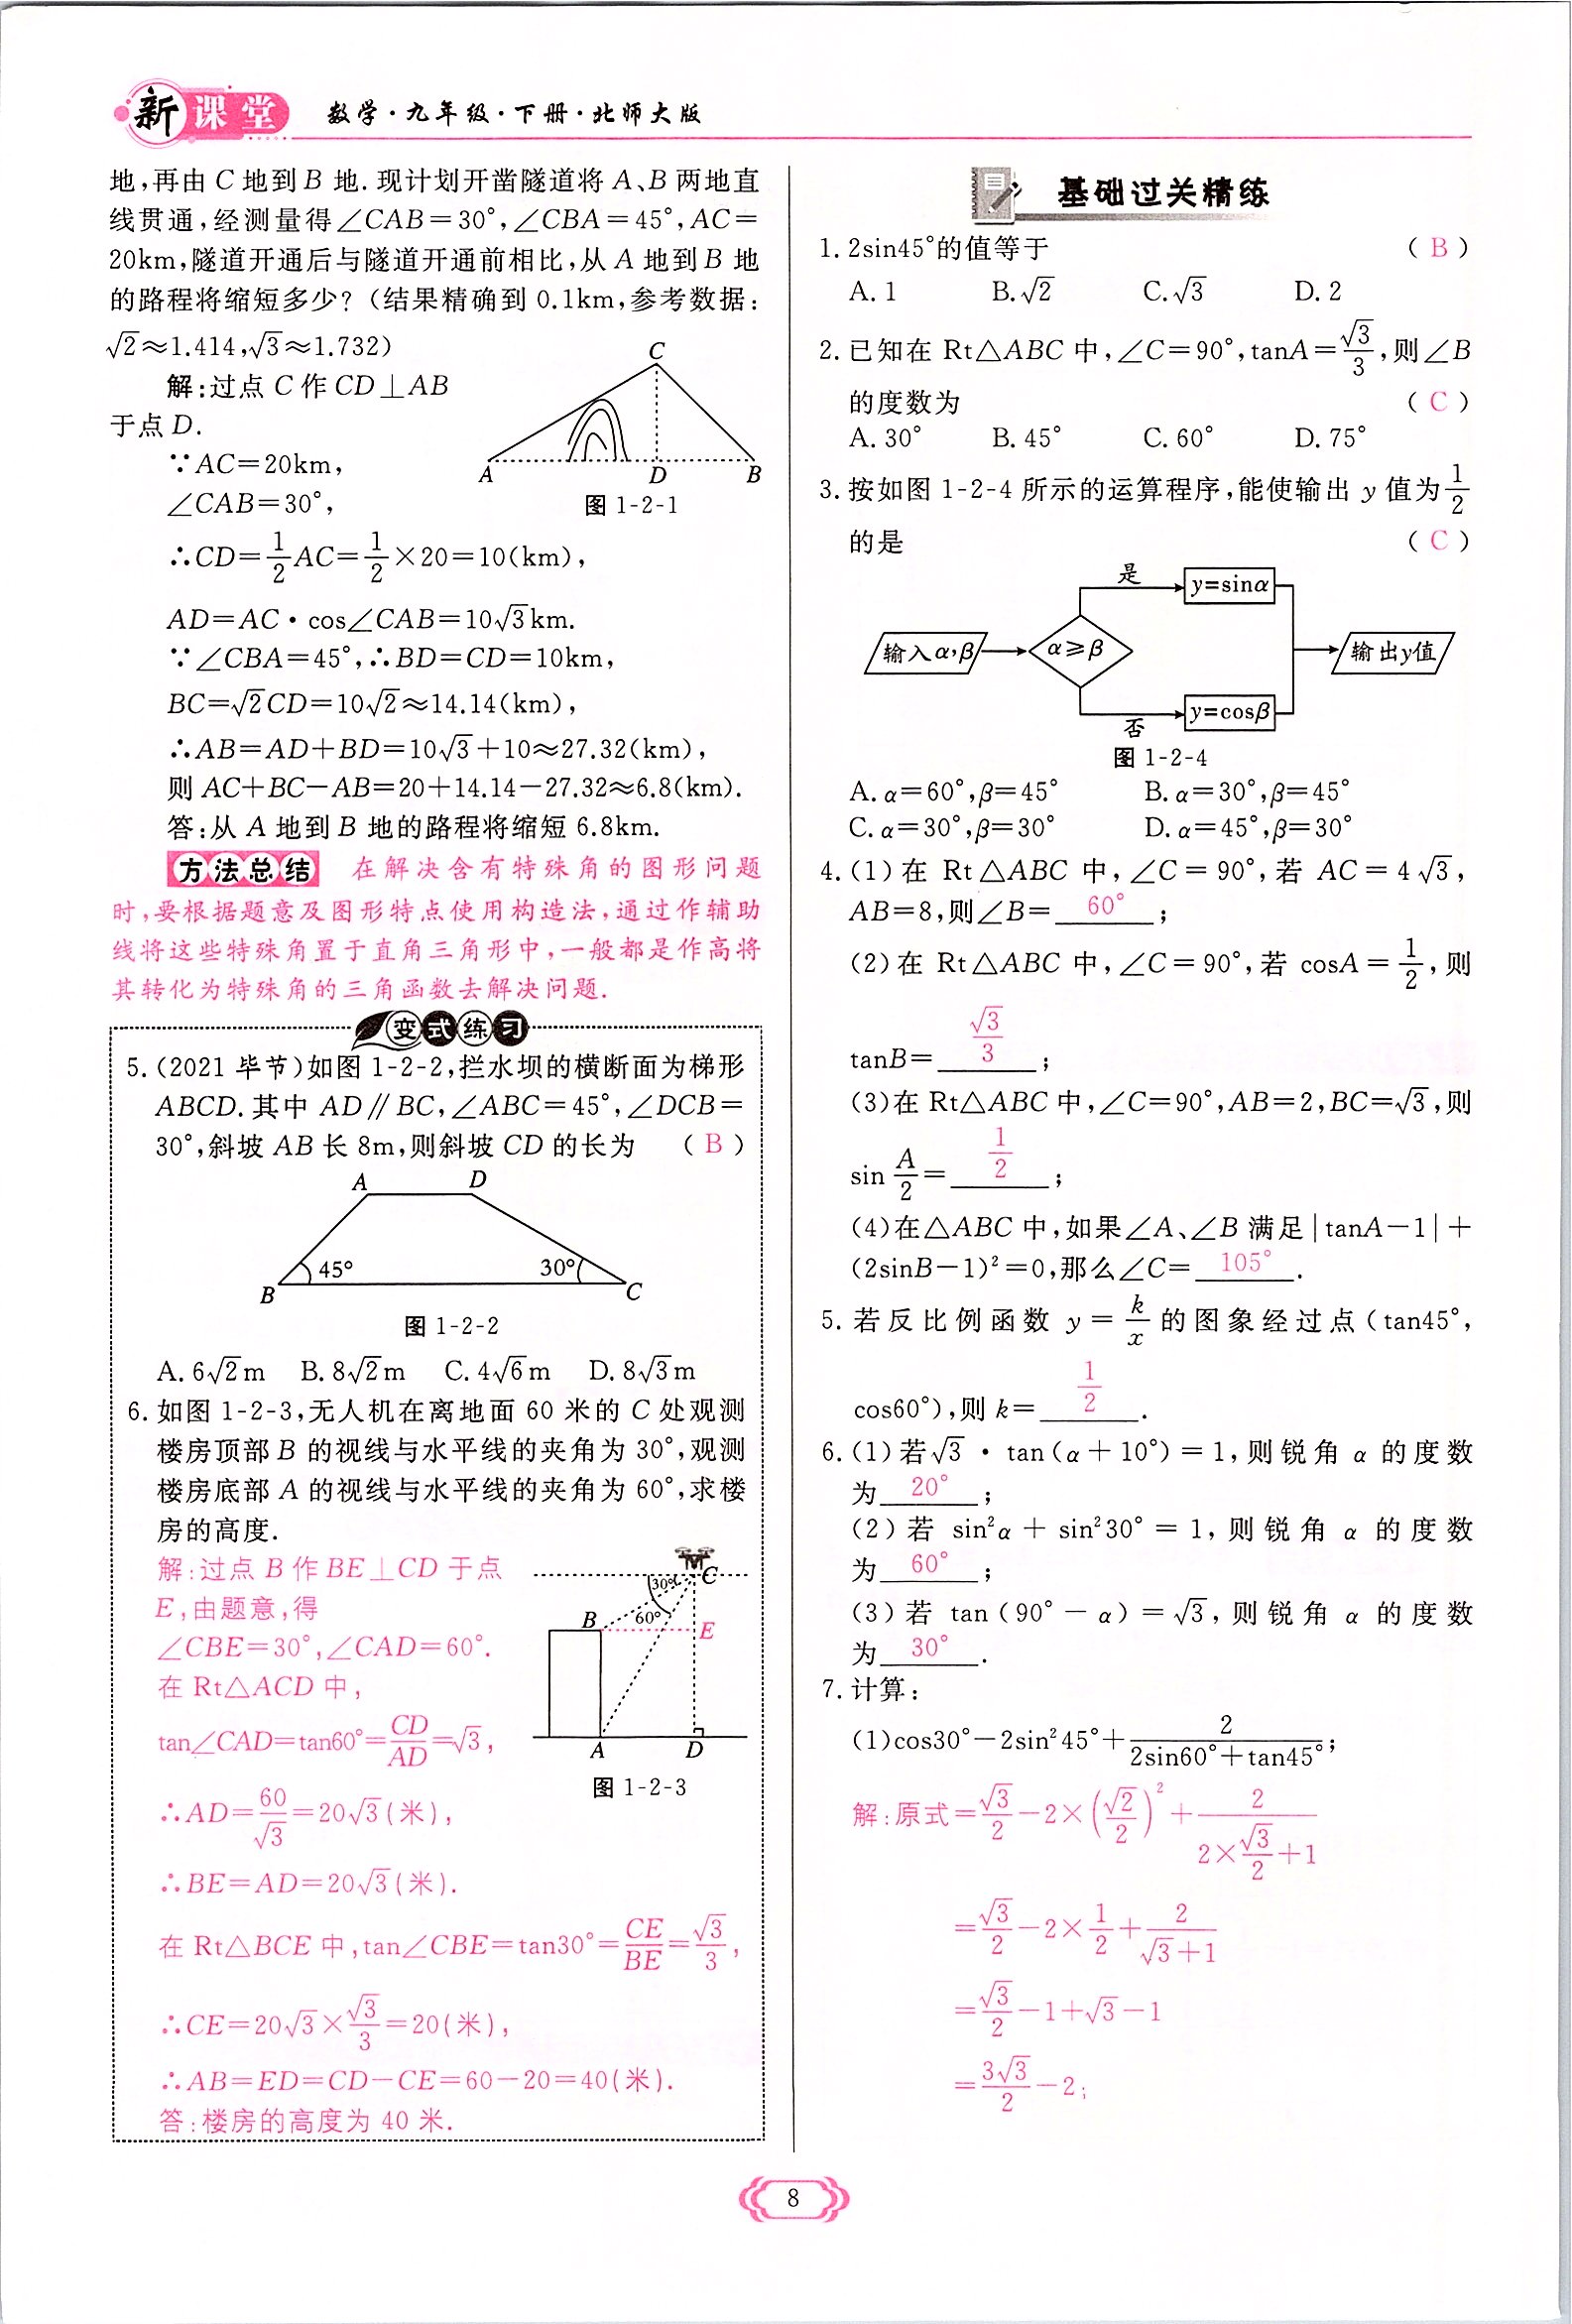 新课堂 数学·九年级·下册·北师大版
地,再由 C 地到 B 地. 现计划开凿隧道将 A、B 两地直
线贯通,经测量得∠CAB=30°,∠CBA=45°,AC=
20km,隧道开通后与隧道开通前相比,从 A 地到 B 地
的路程将缩短多少?(结果精确到 0.1km,参考数据:
√2≈1.414,√3≈1.732)
解:过点 C 作 CD⊥AB
于点 D.
∵AC=20km,
∠CAB=30°,
C
A D B
图 1-2-1
∴CD=1/2AC=1/2×20=10(km),
AD=AC·cos∠CAB=10√3km.
∵∠CBA=45°,∴BD=CD=10km,
BC=√2CD=10√2≈14.14(km),
∴AB=AD+BD=10√3+10≈27.32(km),
则 AC+BC-AB=20+14.14-27.32≈6.8(km).
答:从 A 地到 B 地的路程将缩短 6.8km.
方法总结 在解决含有特殊角的图形问题
时,要根据题意及图形特点使用构造法,通过作辅助
线将这些特殊角置于直角三角形中,一般都是作高将
其转化为特殊角的三角函数去解决问题.
变式练习
5.(2021 毕节)如图 1-2-2,拦水坝的横断面为梯形
ABCD. 其中 AD∥BC,∠ABC=45°,∠DCB=
30°,斜坡 AB 长 8m,则斜坡 CD 的长为 ( B )
A D
45° 30°
B C
图 1-2-2
A. 6√2m B. 8√2m C. 4√6m D. 8√3m
6. 如图 1-2-3,无人机在离地面 60 米的 C 处观测
楼房顶部 B 的视线与水平线的夹角为 30°,观测
楼房底部 A 的视线与水平线的夹角为 60°,求楼
房的高度.
解:过点 B 作 BE⊥CD 于点
E,由题意,得
∠CBE=30°,∠CAD=60°.
在 Rt△ACD 中,
tan∠CAD=tan60°=CD/AD=√3,
30° C
B 60° E
A D
图 1-2-3
∴AD=60/√3=20√3(米),
∴BE=AD=20√3(米).
在 Rt△BCE 中,tan∠CBE=tan30°=CE/BE=√3/3,
∴CE=20√3×√3/3=20(米),
∴AB=ED=CD-CE=60-20=40(米).
答:楼房的高度为 40 米.
基础过关精练
1. 2sin45°的值等于 ( B )
A. 1 B. √2 C. √3 D. 2
2. 已知在 Rt△ABC 中,∠C=90°,tanA=√3/3,则∠B
的度数为 ( C )
A. 30° B. 45° C. 60° D. 75°
3. 按如图 1-2-4 所示的运算程序,能使输出 y 值为1/2
的是 ( C )
是 y=sinα
输入α,β α≥β 输出y值
否 y=cosβ
图 1-2-4
A. α=60°,β=45° B. α=30°,β=45°
C. α=30°,β=30° D. α=45°,β=30°
4.(1)在 Rt△ABC 中,∠C=90°,若 AC=4√3,
AB=8,则∠B=60°;
(2)在 Rt△ABC 中,∠C=90°,若 cosA=1/2,则
tanB=√3/3;
(3)在 Rt△ABC 中,∠C=90°,AB=2,BC=√3,则
sin A/2=1/2;
(4)在△ABC 中,如果∠A、∠B 满足|tanA-1|+
(2sinB-1)²=0,那么∠C=105°.
5. 若反比例函数 y=k/x 的图象经过点(tan45°,
cos60°),则 k=1/2.
6.(1)若√3·tan(α+10°)=1,则锐角 α 的度数
为20°;
(2)若 sin²α+sin²30°=1,则锐角 α 的度数
为60°;
(3)若 tan(90°-α)=√3,则锐角 α 的度数
为30°.
7. 计算:
(1)cos30°-2sin²45°+2/(2sin60°+tan45°);
解:原式=√3/2-2×(√2/2)²+2/(2×√3/2+1)
=√3/2-2×1/2+2/(√3+1)
=√3/2-1+√3-1
=3√3/2-2;
8